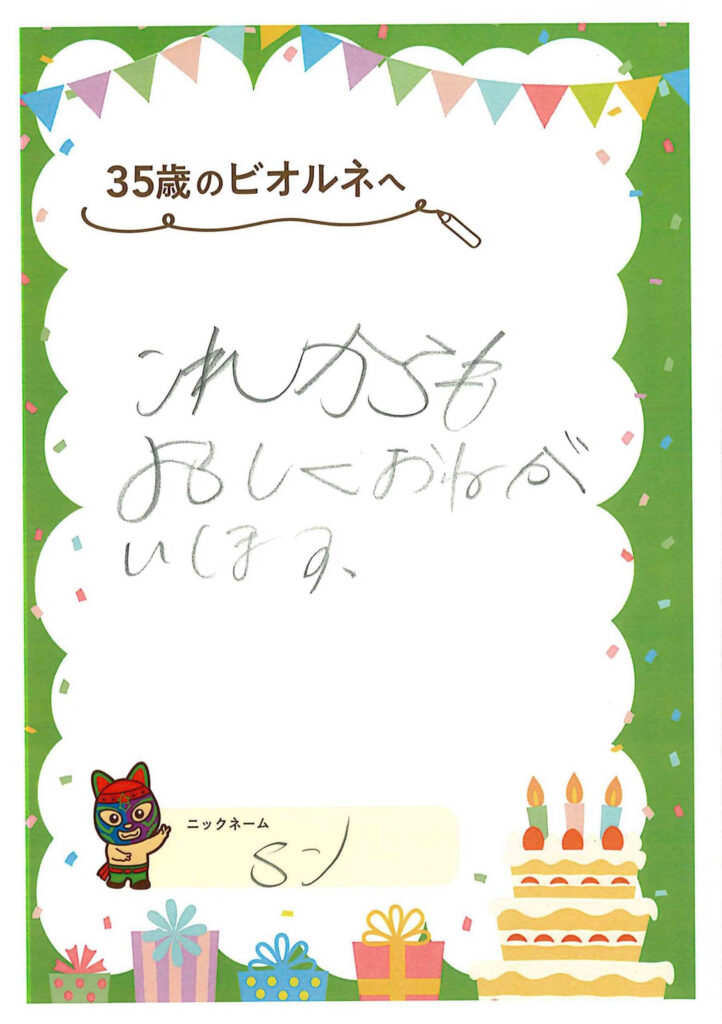 35歳のビオルネへ
これからも
よろしくおねが
いします、
ニックネーム